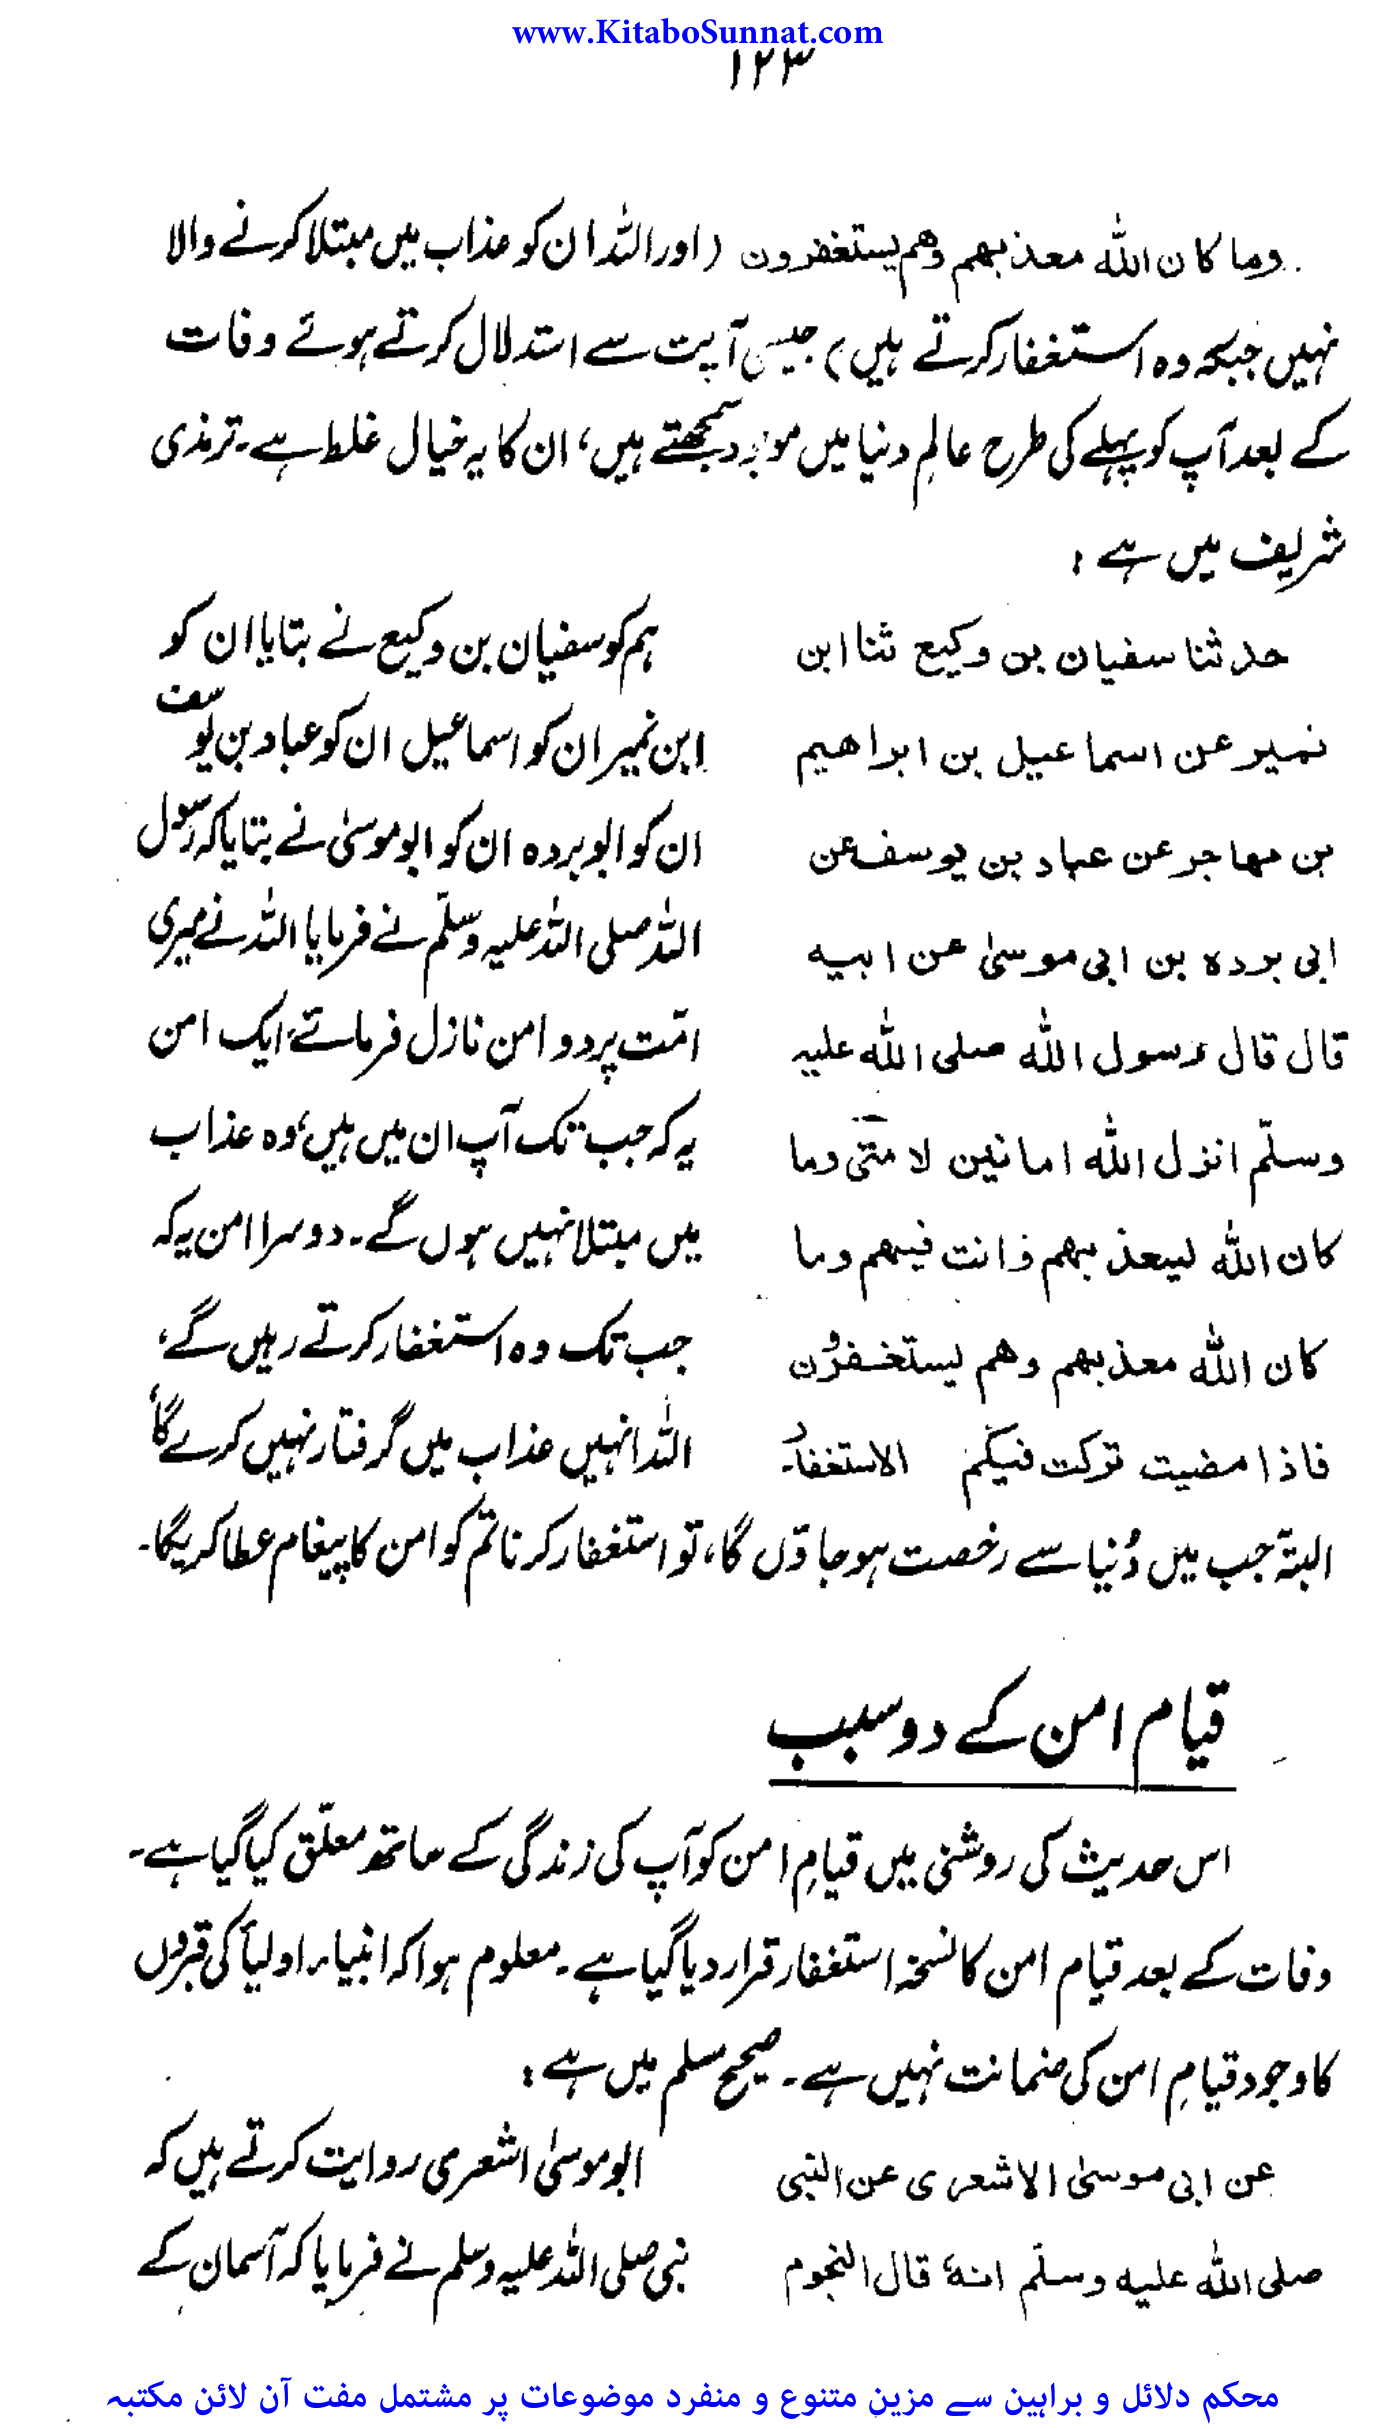 www.KitaboSunnat.com
۱۲۳
وما كان الله معذبهم وهم يستغفرون (اور اللہ ان کو عذاب میں مبتلا کرنے والا
نہیں جبکہ وہ استغفار کرتے ہیں) جیسی آیت سے استدلال کرتے ہوئے وفات
کے بعد آپ کو پہلے کی طرح عالمِ دنیا میں موجود سمجھتے ہیں، ان کا یہ خیال غلط ہے۔ ترمذی
شریف میں ہے :
حدثنا سفيان بن وكيع ثنا ابن
نمير عن اسماعيل بن ابراهيم
بن مهاجر عن عباد بن يوسف عن
ابى برده بن ابى موسىٰ عن ابيه
قال قال رسول الله صلى الله عليه
وسلّم انزل الله امانين لامّتى وما
كان الله ليعذبهم وانت فيهم وما
كان الله معذبهم وهم يستغفرون
فاذا مضيت تركت فيكم الاستغفار
ہم کو سفیان بن وکیع نے بتایا ان کو
ابن نمیر ان کو اسماعیل ان کو عباد بن یوسف
ان کو ابو بردہ ان کو ابو موسیٰ نے بتایا کہ رسول
اللہ صلی اللہ علیہ وسلّم نے فرمایا اللہ نے میری
امّت پر دو امن نازل فرمائے، ایک امن
یہ کہ جب تک آپ ان میں ہیں، وہ عذاب
میں مبتلا نہیں ہوں گے۔ دوسرا امن یہ کہ
جب تک وہ استغفار کرتے رہیں گے،
اللہ انہیں عذاب میں گرفتار نہیں کرے گا،
البتہّ جب میں دُنیا سے رخصت ہو جاؤں گا، تو استغفار کرنا تم کو امن کا پیغام عطا کریگا۔
قیامِ امن کے دو سبب
اس حدیث کی روشنی میں قیامِ امن کو آپ کی زندگی کے ساتھ معلّق کیا گیا ہے۔
وفات کے بعد قیام امن کا نسخہ استغفار قرار دیا گیا ہے۔ معلوم ہوا کہ انبیاء، اولیأ کی قبروں
کا وجود قیامِ امن کی ضمانت نہیں ہے۔ صحیح مسلم میں ہے :
عن ابى موسىٰ الاشعرى عن النبى
صلى الله عليه وسلّم انهٗ قال النجوم
ابو موسیٰ اشعری روایت کرتے ہیں کہ
نبی صلی اللہ علیہ وسلم نے فرمایا کہ آسمان کے
محکم دلائل و براہین سے مزین متنوع و منفرد موضوعات پر مشتمل مفت آن لائن مکتبہ